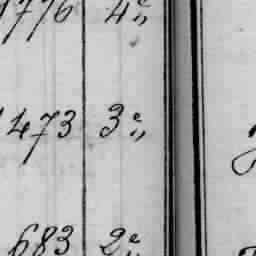 1776 4 e„
1473 3 e„
683 2 e„